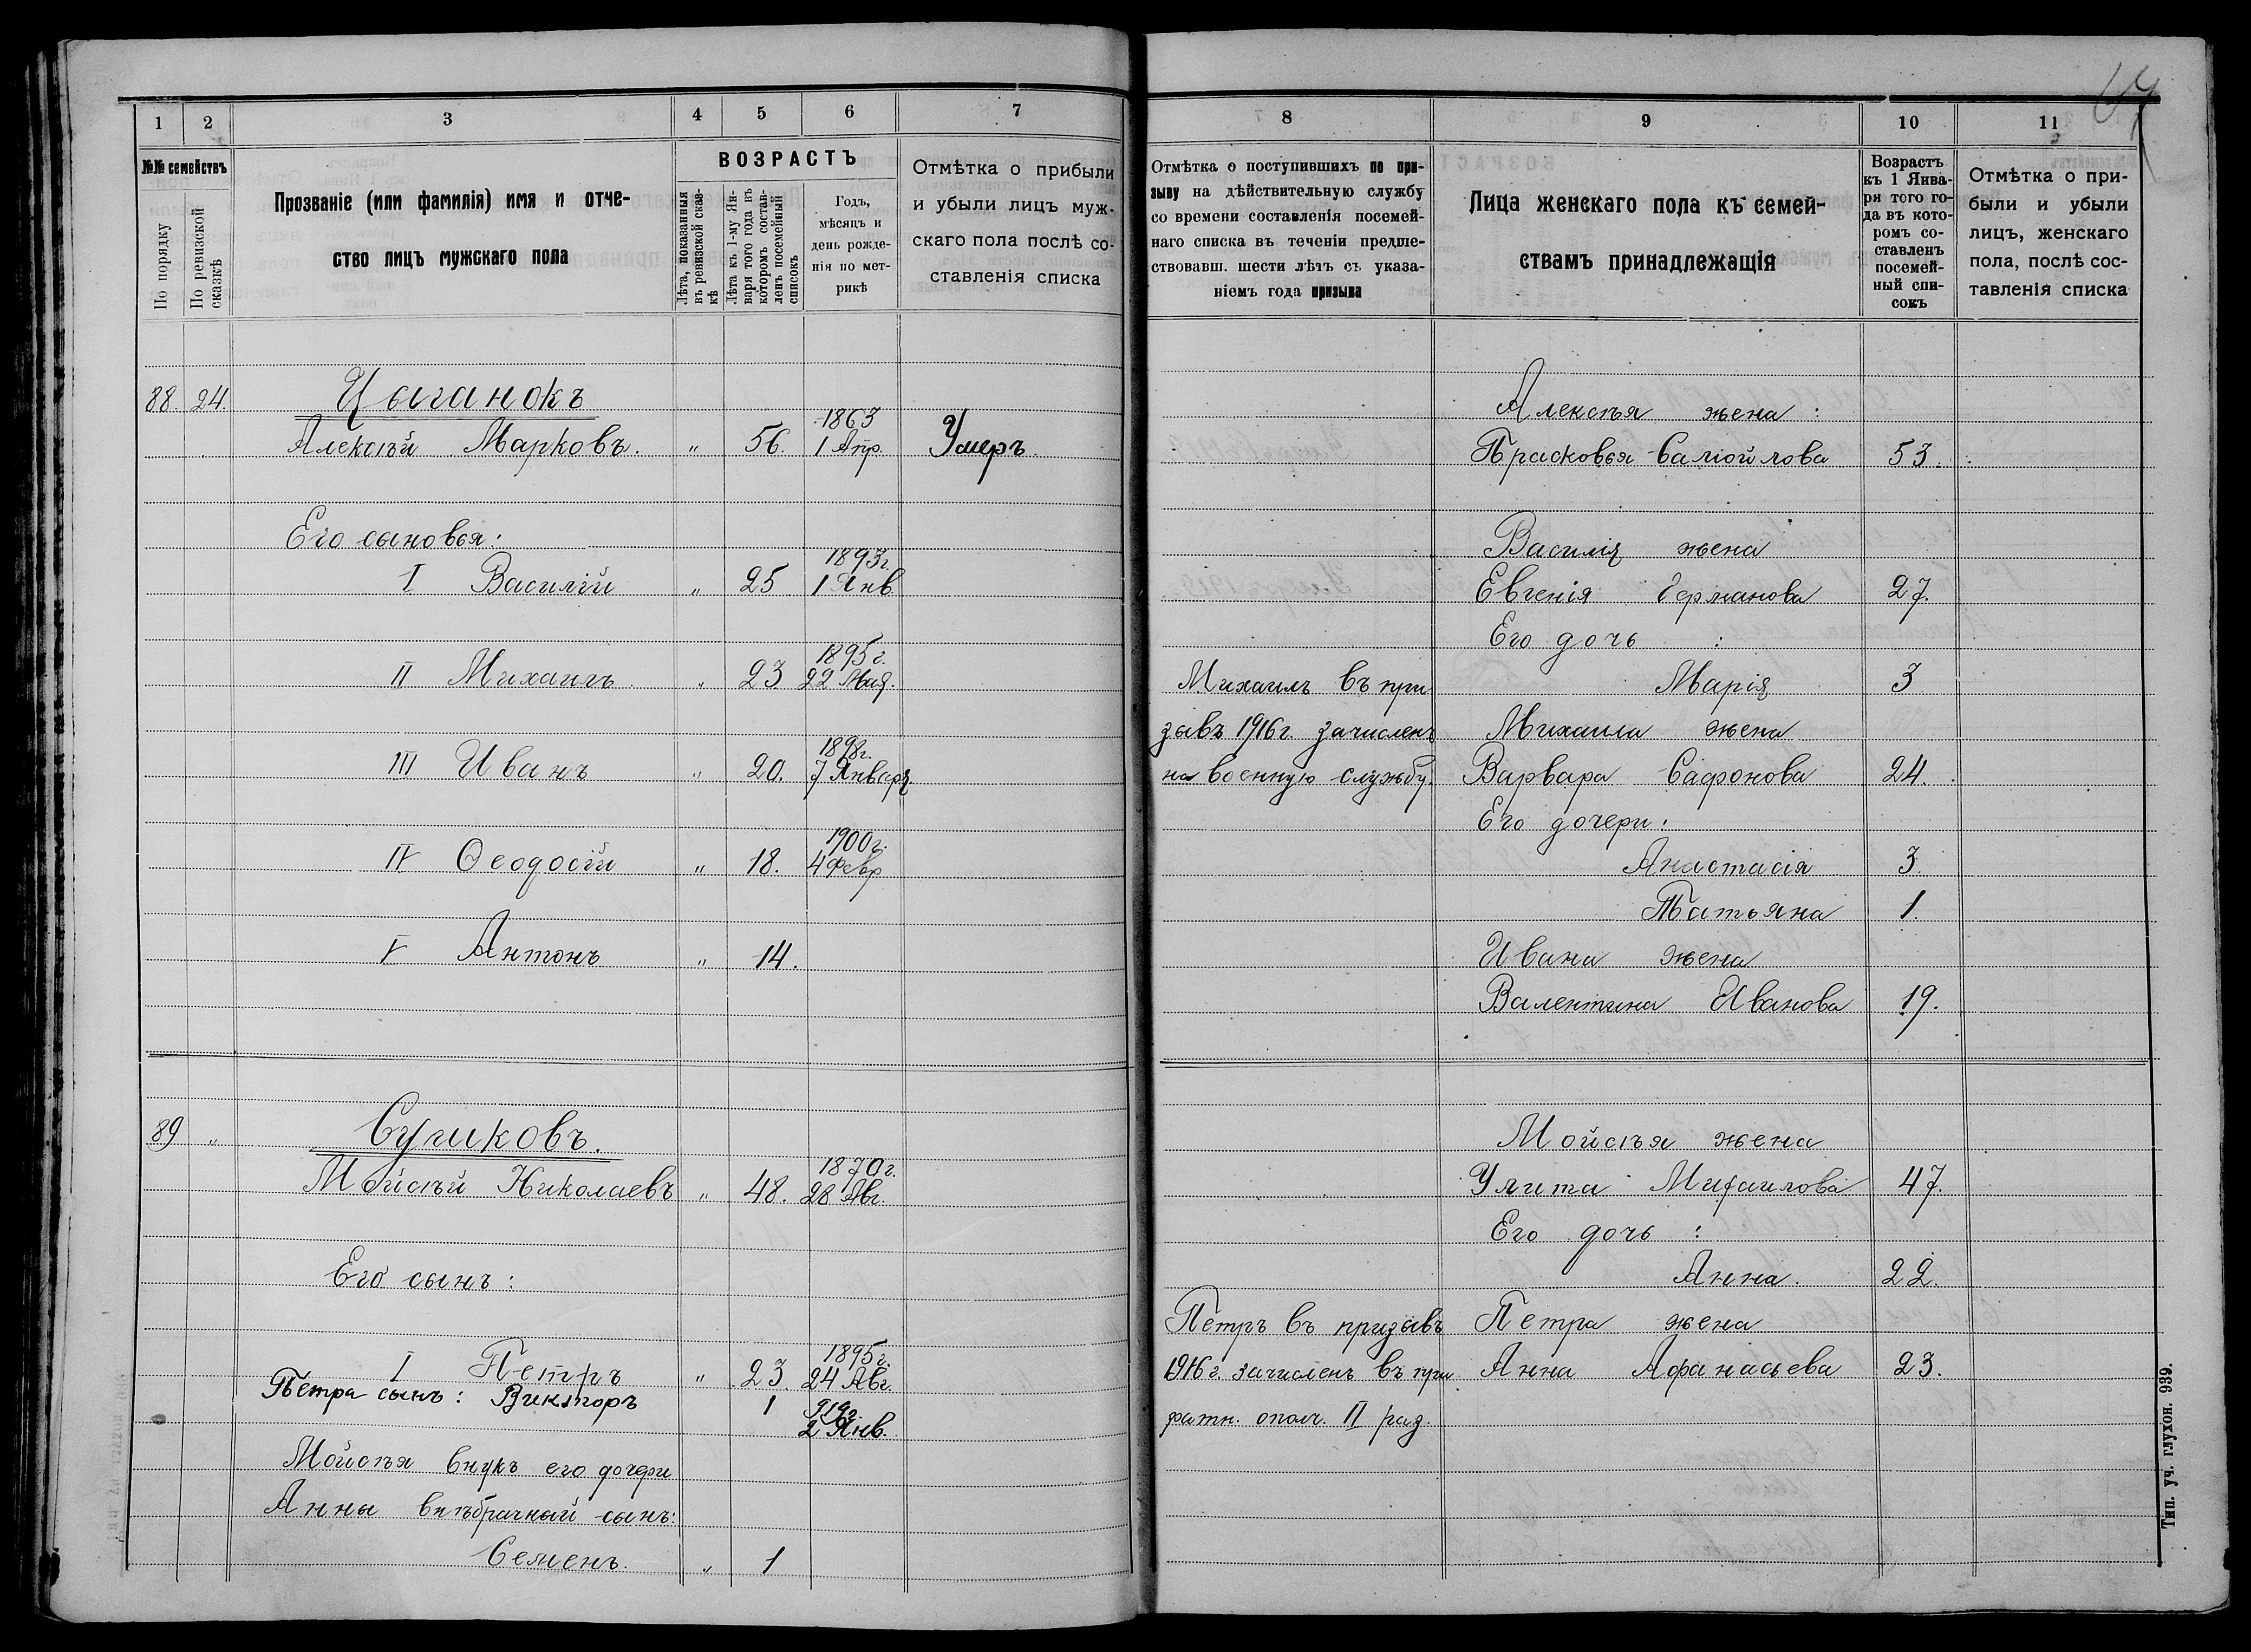 1 2 3 4 5 6 7
№№ семействъ
По порядку
По ревизской сказкѣ
Прозваніе (или фамилія) имя и отче-
ство лицъ мужскаго пола
ВОЗРАСТЪ
Лѣта, показанныя
въ ревизской сказ-
кѣ
Лѣта къ 1-му Ян-
варя того года въ
которомъ состав-
ленъ посемейный
списокъ
Годъ,
мѣсяцъ и
день рожде-
нія по мет-
рикѣ
Отмѣтка о прибыли
и убыли лицъ муж-
скаго пола послѣ со-
ставленія списка
88. 24. Цыганокъ
Алексѣй Марковъ. „ 56. 1863 1 Апр. Умеръ.
Его сыновья:
I Василій „ 25 1893г. 1 Янв.
II Михаилъ „ 23 1895г. 22 Мая.
III Иванъ „ 20. 1898г. 7 Января.
IV Ѳеодосій „ 18. 1900г. 4 Февр
V Антонъ „ 14.
89 „ Суликовъ.
Мойсѣй Николаевъ „ 48. 1870г. 28 Авг.
Его сынъ:
I Петръ „ 23. 1895г. 24 Авг.
Петра сынъ: Викторъ 1 2 Янв.
Мойсѣя внукъ его дочери
Анны внѣбрачный сынъ:
Семенъ. „ 1
8 9 10 11
Отмѣтка о поступившихъ по при-
зыву на дѣйствительную службу
со времени составленія посемей-
наго списка въ теченіи предше-
ствовавш. шести лѣтъ съ указа-
ніемъ года призыва
Лица женскаго пола къ семей-
ствамъ принадлежащія
Возрастъ
къ 1 Янва-
ря того го-
да въ кото-
ромъ со-
ставленъ
посемей-
ный спи-
сокъ
Отмѣтка о при-
были и убыли
лицъ, женскаго
пола, послѣ сос-
тавленія списка
Алексѣя жена:
Прасковья Самойлова 53.
Василія жена
Евгенія Германова 27.
Его дочь :
Михаилъ въ при Марія 3
зывъ 1916г. зачисленъ Михаила жена
на военную службу. Варвара Сафонова 24.
Его дочери:
Анастасія 3.
Татьяна 1.
Ивана жена
Валентина Иванова 19.
Мойсѣя жена
Улита Михаилова 47.
Его дочь :
Анна. 22.
Петръ въ призывъ Петра жена
1916г. зачисленъ въ при Анна Афанасьева 23.
ратн. ополч. II раз.
Тип. уч. глухон. 939.